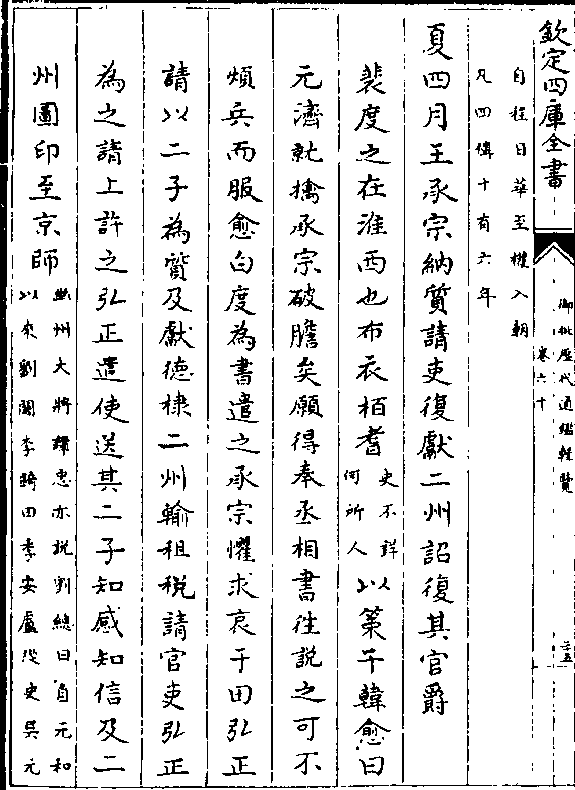 欽定四庫全書
御批歷代通鑑輯覽
卷六十
三五
自程日華至權入朝
凡四傳十有六年
夏四月王承宗納質請吏復獻二州詔復其官爵
裴度之在淮西也布衣栢耆史不詳何所人以策干韓愈曰
元濟就擒承宗破膽矣願得奉丞相書往說之可不
煩兵而服愈白度為書遣之承宗懼求哀于田弘正
請以二子為質及獻德棣二州輸租稅請官吏弘正
為之請上許之弘正遣使送其二子知感知信及二
州圖印至京師幽州大將譚忠亦說劉總曰自元和以來劉闢李錡田季安盧從史吳元